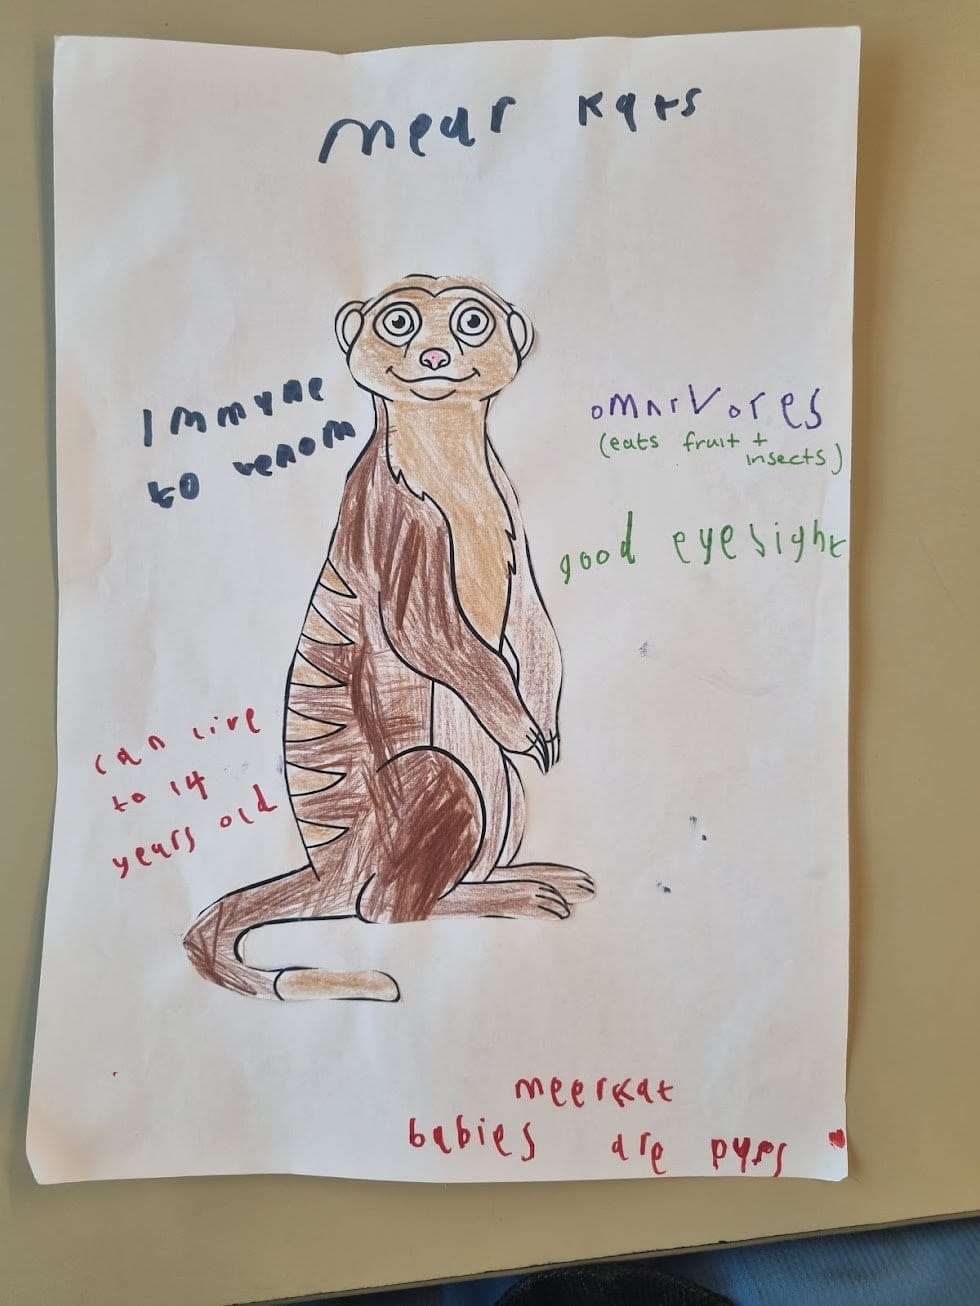 mear kats
Immune
to venom
omnivores
(eats fruit +
insects)
good eyesight
can live
to 14
years old
meerkat
babies are pups